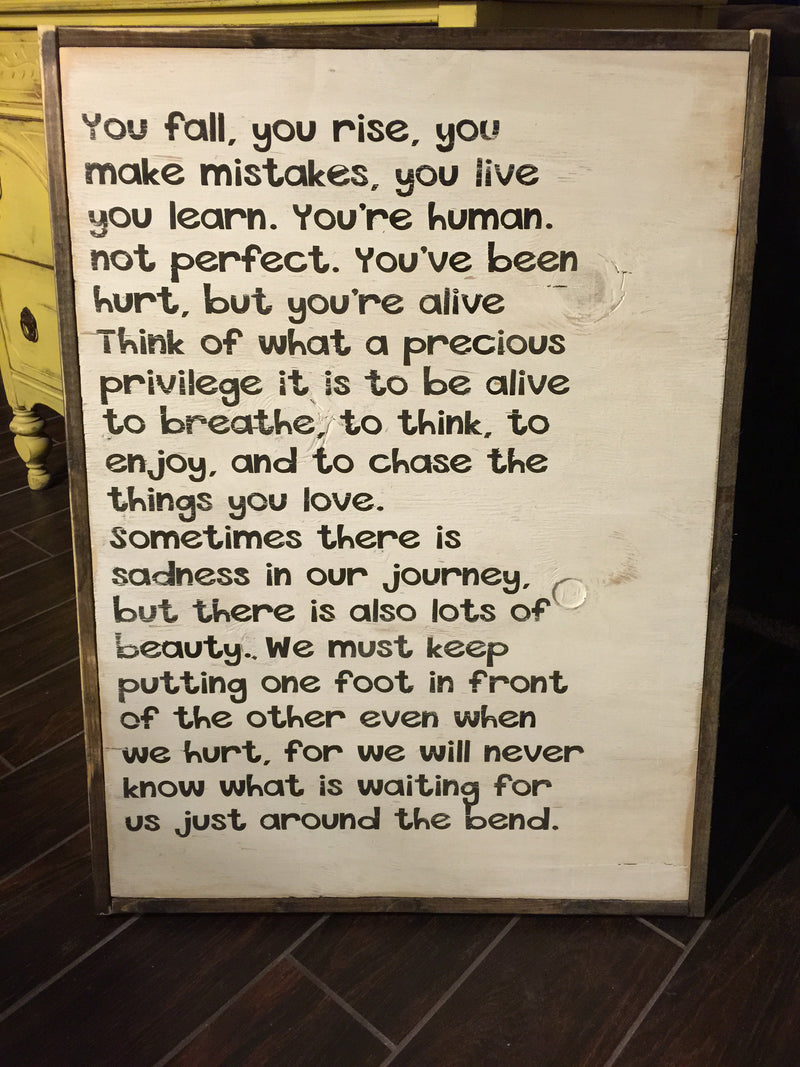 You fall, you rise, you
make mistakes, you live
you learn. You're human.
not perfect. You've been
hurt, but you're alive
Think of what a precious
privilege it is to be alive
to breathe, to think, to
enjoy, and to chase the
things you love.
Sometimes there is
sadness in our journey,
but there is also lots of
beauty.. We must keep
putting one foot in front
of the other even when
we hurt, for we will never
know what is waiting for
us just around the bend.